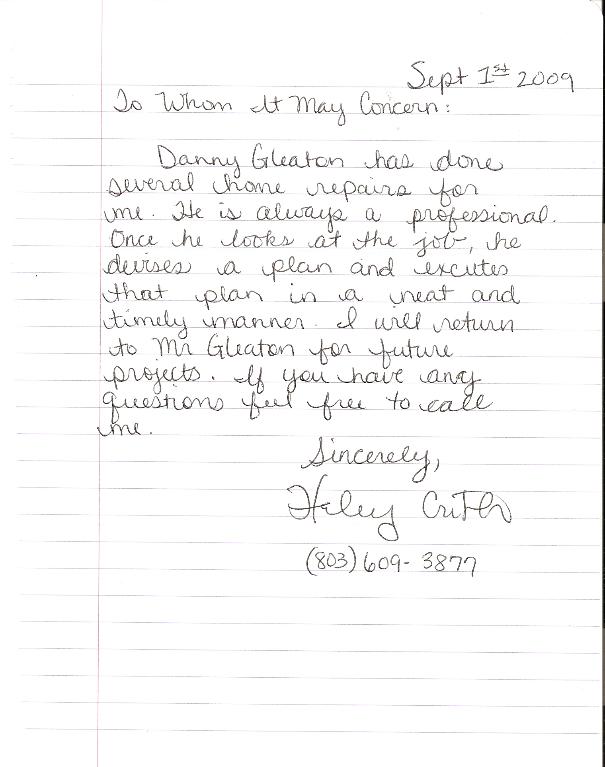 Sept 1st 2009
To Whom It May Concern:
Danny Gleaton has done
several home repairs for
me. He is always a professional.
Once he looks at the job, he
devises a plan and excutes
that plan in a neat and
timely manner. I will return
to Mr Gleaton for future
projects. If you have any
questions feel free to call
me.
Sincerely,
(803) 609-3877